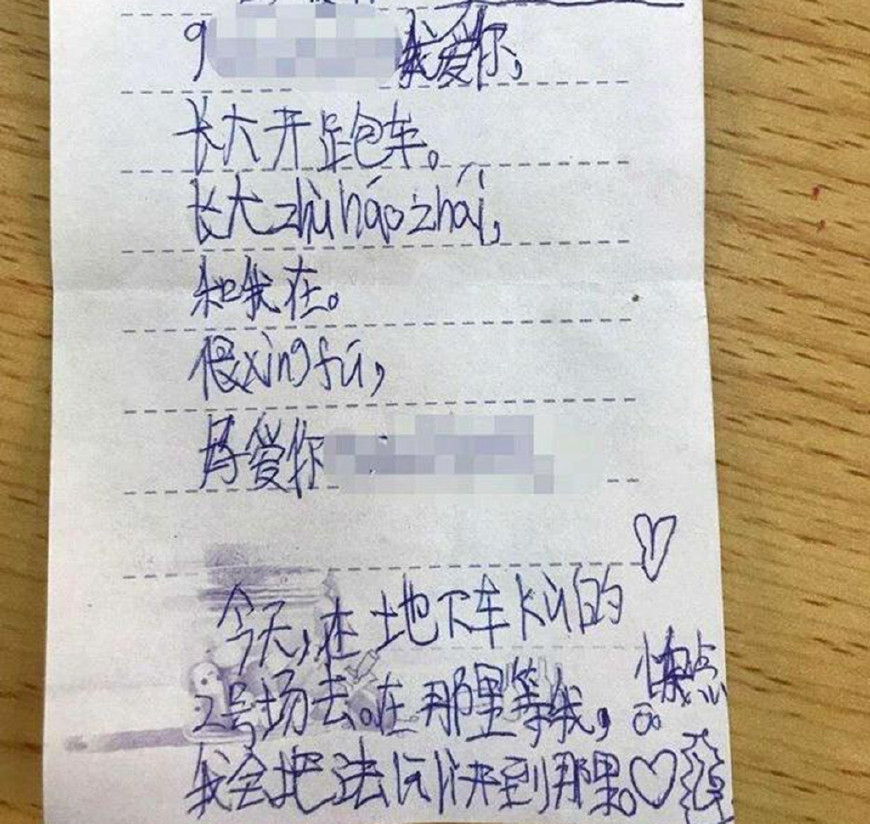 9 我爱你,
长大开跑车。
长大zhù háo zhái,
和我在。
很xìng fú,
再爱你
今天,在地下车kù的
2号场去。在那里等我,
快点
我会把法 开到那里。